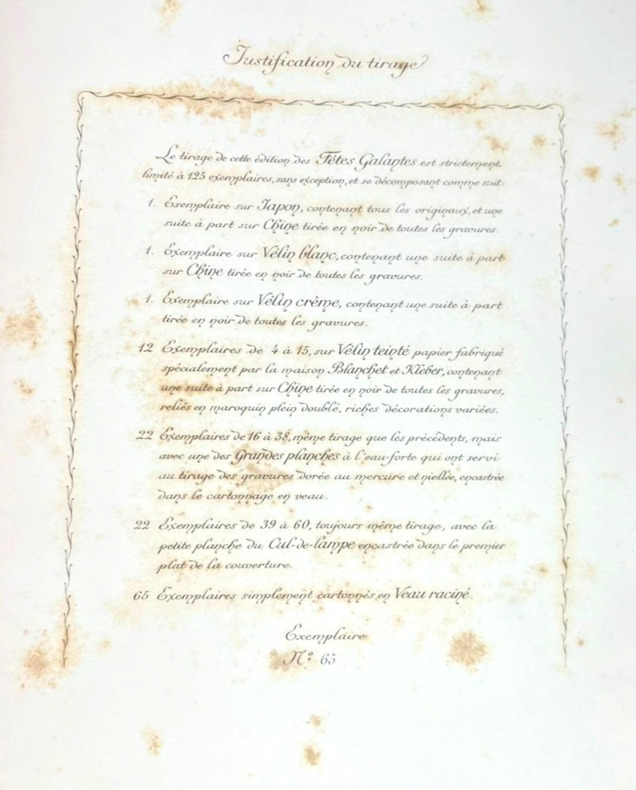 Justification du tirage
Le tirage de cette édition des Fêtes Galantes est strictement
limité à 125 exemplaires, sans exception, et se décomposant comme suit:
1. Exemplaire sur Japon, contenant tous les originaux, et une
suite à part sur Chine tirée en noir de toutes les gravures.
1. Exemplaire sur Vélin blanc, contenant une suite à part
sur Chine tirée en noir de toutes les gravures.
1. Exemplaire sur Vélin crême, contenant une suite à part
tirée en noir de toutes les gravures.
12 Exemplaires de 4 à 15, sur Vélin teinté papier fabriqué
spécialement par la maison Blanchet et Kleber, contenant
une suite à part sur Chine tirée en noir de toutes les gravures,
reliés en maroquin plein doublé, riches décorations variées.
22 Exemplaires de 16 à 38, même tirage que les précédents, mais
avec une des Grandes planches à l'eau-forte qui ont servi
au tirage des gravures dorée au mercure et niellée, encastrée
dans le cartonnage en veau.
22 Exemplaires de 39 à 60, toujours même tirage, avec la
petite planche du Cul-de-lampe encastrée dans le premier
plat de la couverture.
65 Exemplaires simplement cartonnés en Veau raciné.
Exemplaire
Nº 65